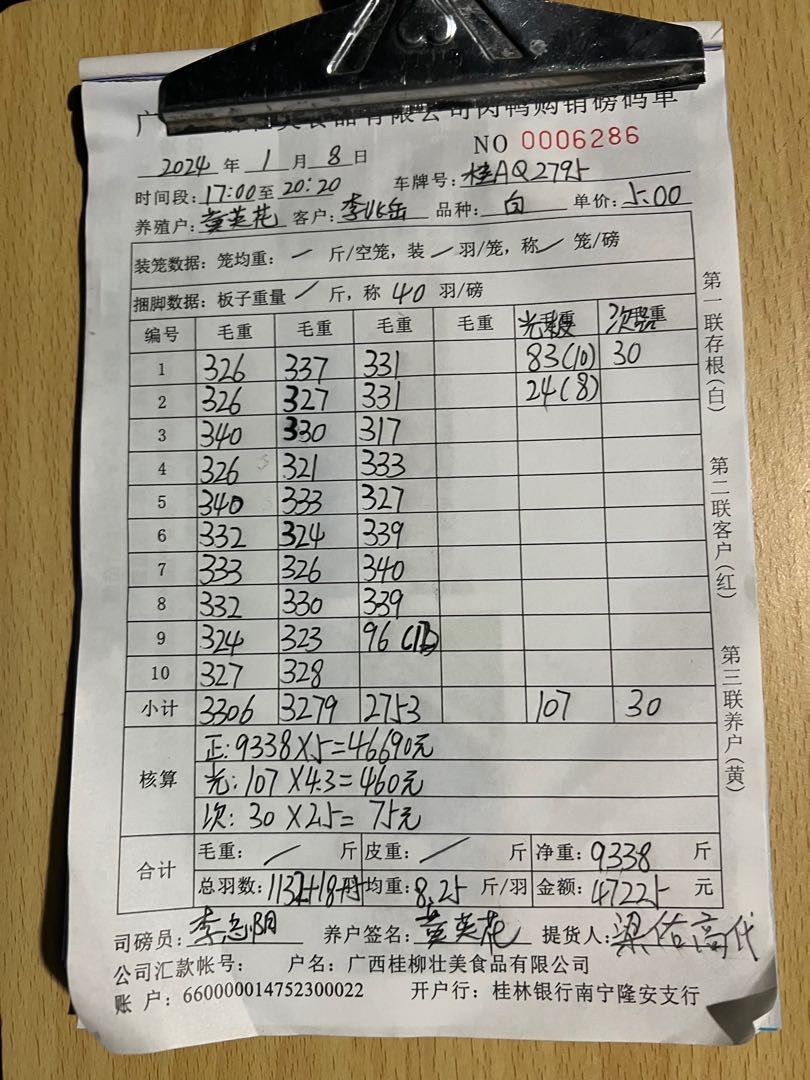 食品有限公司肉鸭购销磅码单
NO 0006286
2024 年 1 月 8 日
时间段: 17:00 至 20:20 车牌号: 桂AQ2795
养殖户: 黄英花 客户: 品种: 白 单价: 5.00
装笼数据: 笼均重: / 斤/空笼, 装 / 羽/笼, 称 / 笼/磅
捆脚数据: 板子重量 / 斤, 称 40 羽/磅
编号 毛重 毛重 毛重 毛重
1 326 337 331 83(10) 30
2 326 327 331 24(8)
3 340 330 317
4 326 321 333
5 340 333 327
6 332 324 339
7 333 326 340
8 332 330 339
9 324 323 96
10 327 328
小计 3306 3279 2753 107 30
核算
正: 9338×5=46690元
光: 107×4.3=460元
次: 30×2.5= 75元
合计
毛重: / 斤 皮重: / 斤 净重: 9338 斤
总羽数: 1132+18 均重: 8.25 斤/羽 金额: 47225 元
司磅员: 养户签名: 黄英花 提货人:
公司汇款帐号: 户名: 广西桂柳壮美食品有限公司
账 户: 660000014752300022 开户行: 桂林银行南宁隆安支行
第一联存根(白) 第二联客户(红) 第三联养户(黄)